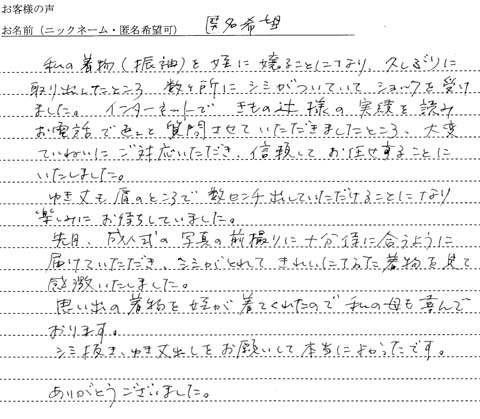 お客様の声
お名前(ニックネーム・匿名希望可) 匿名希望
私の着物(振袖)を姪に譲ることになり、久しぶりに
取り出したところ 数ヶ所にシミがついていて ショックを受け
ました。 インターネットで きもの辻様の実績を読み
お電話で色々と質問させていただきましたところ、大変
ていねいにご対応いただき、信頼してお任せすることに
いたしました。
ゆき丈も肩のところで数センチ出していただけることになり
楽しみにお待ちしていました。
先月、成人式の写真の前撮りに十分間に合うように
届けていただき、シミがとれてきれいになった着物を見て
感激いたしました。
思い出の着物を姪が着てくれたので私の母も喜んで
おります。
シミ抜き、ゆき丈出しをお願いして本当によかったです。
ありがとうございました。